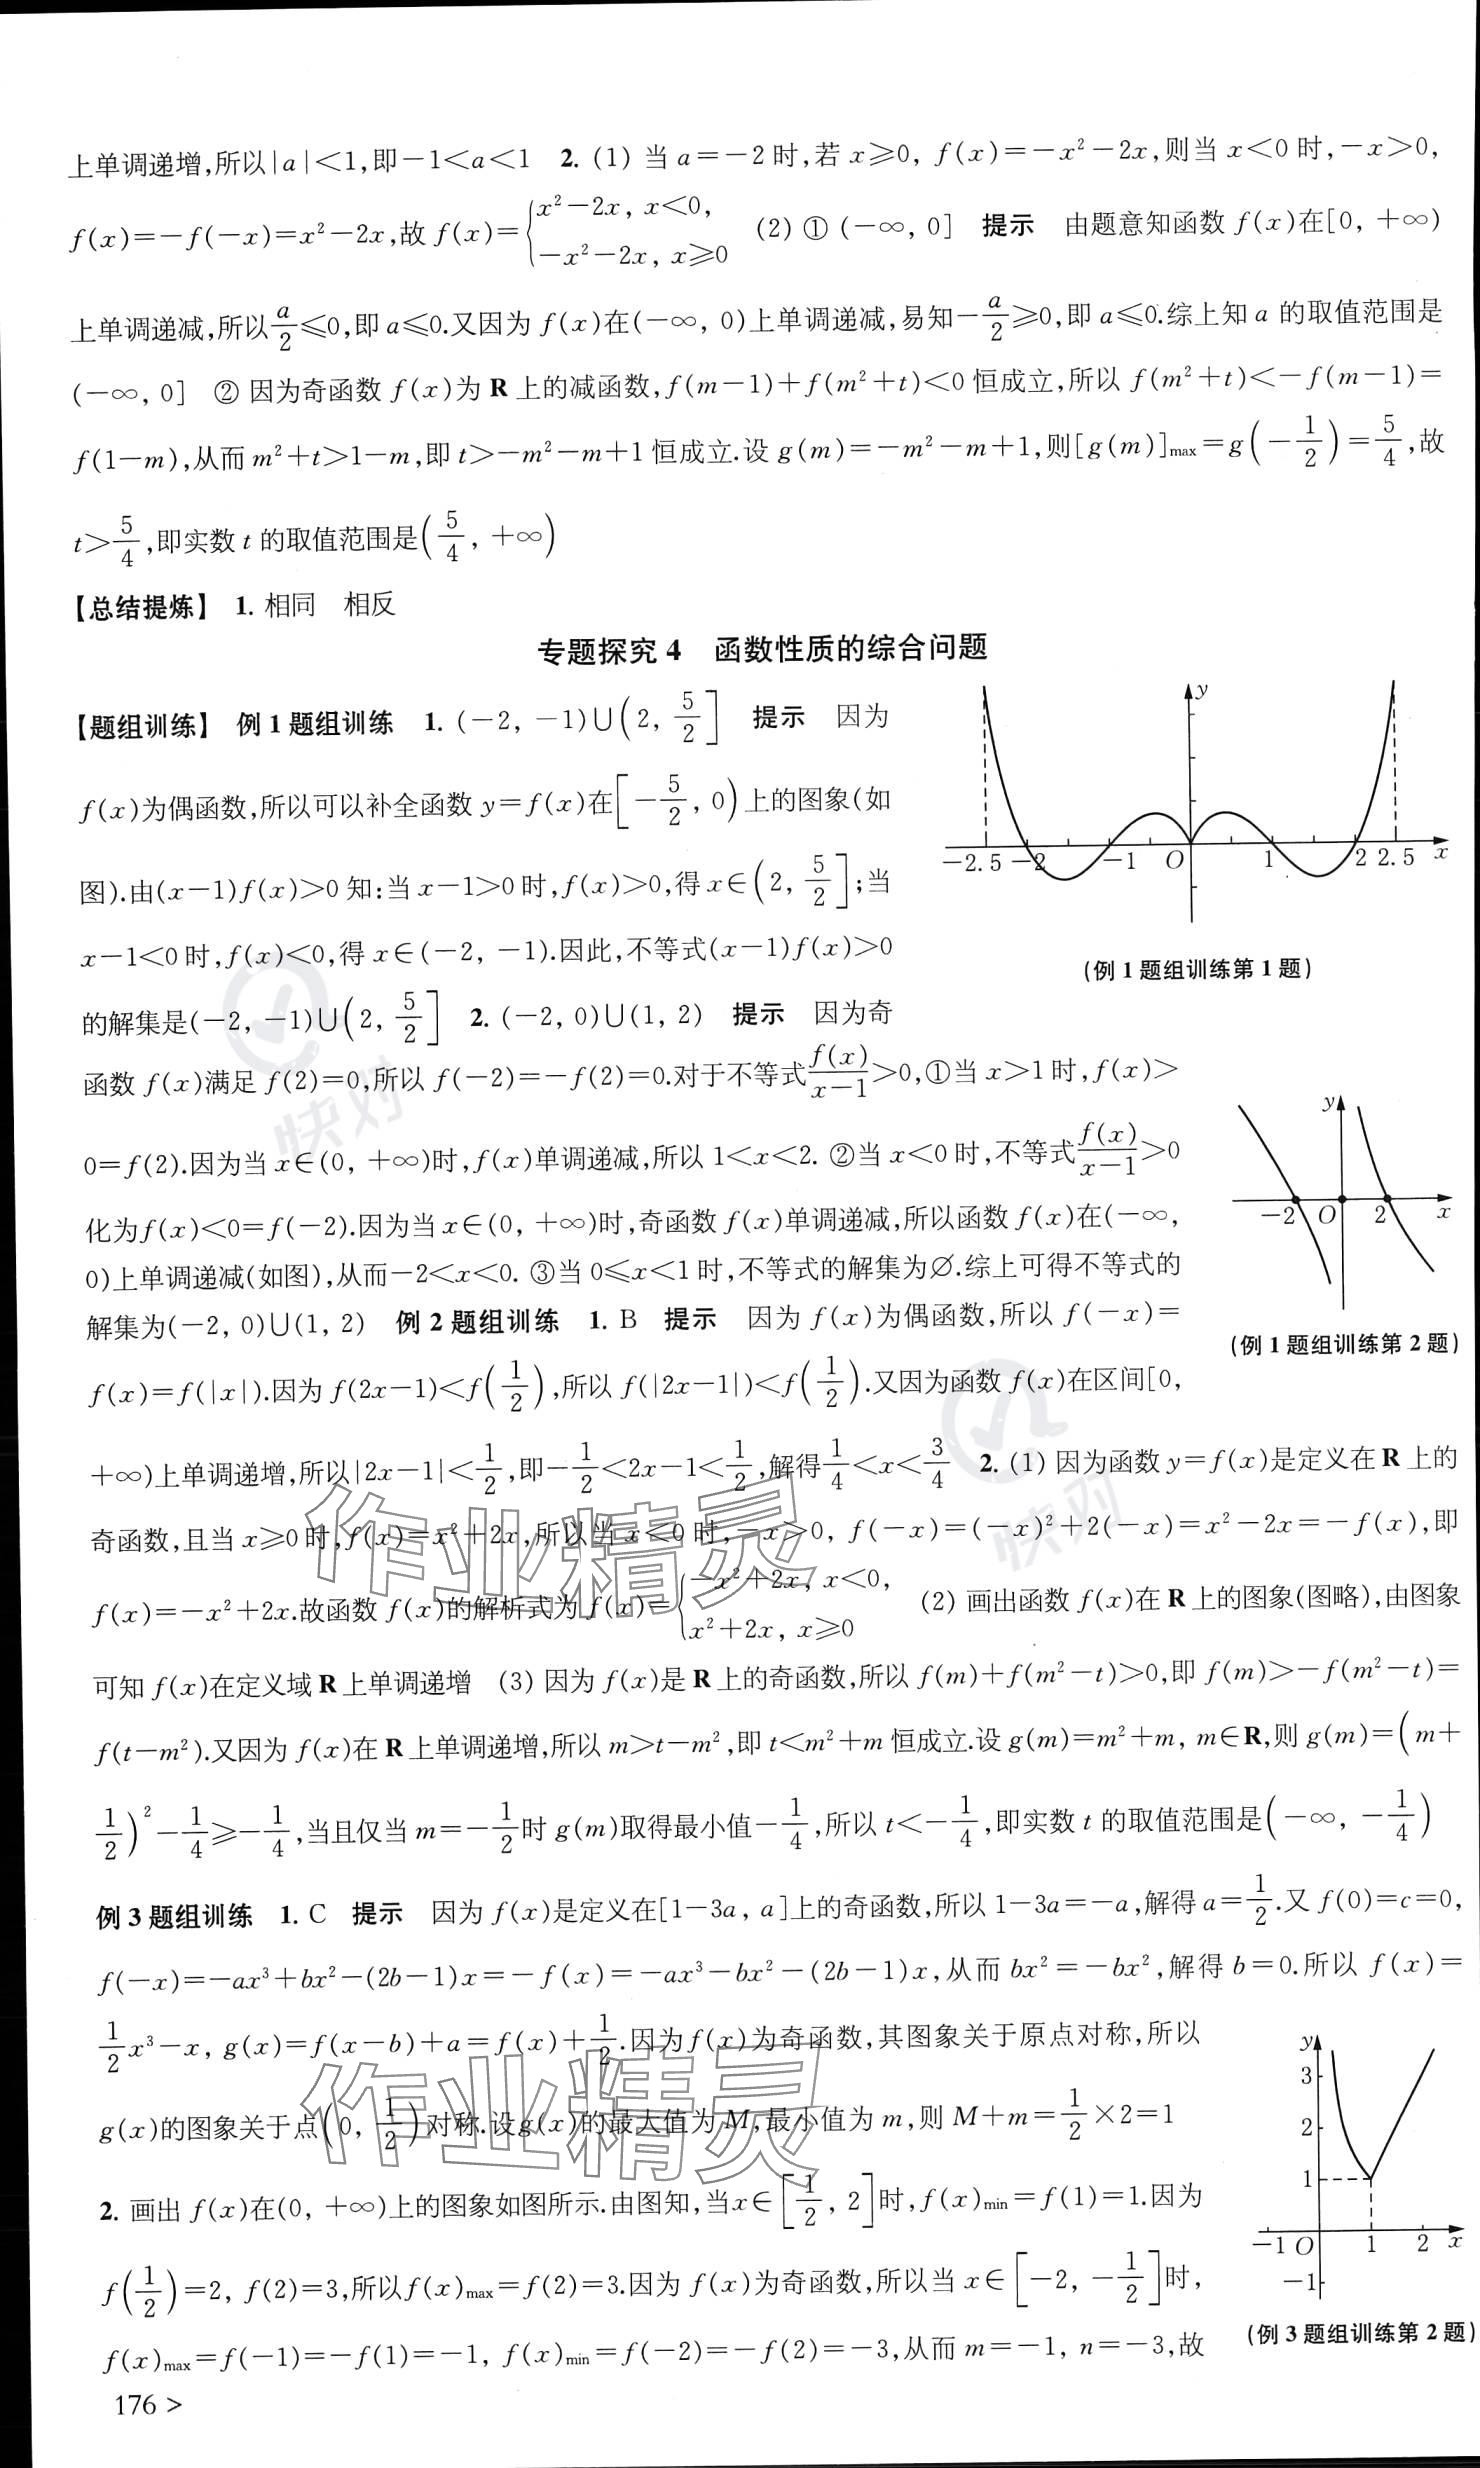 上单调递增,所以|a|<1,即-1<a<1 2. (1) 当 a=-2 时,若 x≥0, f(x)=-x²-2x,则当 x<0 时,-x>0,
f(x)=-f(-x)=x²-2x,故 f(x)={x²-2x, x<0, -x²-2x, x≥0 (2) ① (-∞, 0] 提示 由题意知函数 f(x)在[0, +∞)
上单调递减,所以a/2≤0,即 a≤0.又因为 f(x)在(-∞, 0)上单调递减,易知-a/2≥0,即 a≤0.综上知 a 的取值范围是
(-∞, 0] ② 因为奇函数 f(x)为 R 上的减函数,f(m-1)+f(m²+t)<0 恒成立,所以 f(m²+t)<-f(m-1)=
f(1-m),从而 m²+t>1-m,即 t>-m²-m+1 恒成立.设 g(m)=-m²-m+1,则[g(m)]max=g(-1/2)=5/4,故
t>5/4,即实数 t 的取值范围是(5/4, +∞)
【总结提炼】 1. 相同 相反
专题探究 4 函数性质的综合问题
【题组训练】 例 1 题组训练 1. (-2, -1)∪(2, 5/2] 提示 因为
f(x)为偶函数,所以可以补全函数 y=f(x)在[-5/2, 0)上的图象(如
图).由(x-1)f(x)>0 知:当 x-1>0 时,f(x)>0,得 x∈(2, 5/2];当
x-1<0 时,f(x)<0,得 x∈(-2, -1).因此,不等式(x-1)f(x)>0
的解集是(-2, -1)∪(2, 5/2] 2. (-2, 0)∪(1, 2) 提示 因为奇
y
-2.5 -2 -1 O 1 2 2.5 x
(例 1 题组训练第 1 题)
函数 f(x)满足 f(2)=0,所以 f(-2)=-f(2)=0.对于不等式f(x)/(x-1)>0,①当 x>1 时,f(x)>
0=f(2).因为当 x∈(0, +∞)时,f(x)单调递减,所以 1<x<2. ②当 x<0 时,不等式f(x)/(x-1)>0
化为f(x)<0=f(-2).因为当 x∈(0, +∞)时,奇函数 f(x)单调递减,所以函数 f(x)在(-∞,
0)上单调递减(如图),从而-2<x<0. ③当 0≤x<1 时,不等式的解集为∅.综上可得不等式的
解集为(-2, 0)∪(1, 2) 例 2 题组训练 1. B 提示 因为 f(x)为偶函数,所以 f(-x)=
f(x)=f(|x|).因为 f(2x-1)<f(1/2),所以 f(|2x-1|)<f(1/2).又因为函数 f(x)在区间[0,
y
-2 O 2 x
(例 1 题组训练第 2 题)
+∞)上单调递增,所以|2x-1|<1/2,即-1/2<2x-1<1/2,解得1/4<x<3/4 2. (1) 因为函数 y=f(x)是定义在 R 上的
奇函数,且当 x≥0 时,f(x)=x²+2x,所以当 x<0 时,-x>0, f(-x)=(-x)²+2(-x)=x²-2x=-f(x),即
f(x)=-x²+2x.故函数 f(x)的解析式为 f(x)={-x²+2x, x<0, x²+2x, x≥0 (2) 画出函数 f(x)在 R 上的图象(图略),由图象
可知 f(x)在定义域 R 上单调递增 (3) 因为 f(x)是 R 上的奇函数,所以 f(m)+f(m²-t)>0,即 f(m)>-f(m²-t)=
f(t-m²).又因为 f(x)在 R 上单调递增,所以 m>t-m²,即 t<m²+m 恒成立.设 g(m)=m²+m, m∈R,则 g(m)=(m+
1/2)²-1/4≥-1/4,当且仅当 m=-1/2时 g(m)取得最小值-1/4,所以 t<-1/4,即实数 t 的取值范围是(-∞, -1/4)
例 3 题组训练 1. C 提示 因为 f(x)是定义在[1-3a, a]上的奇函数,所以 1-3a=-a,解得 a=1/2.又 f(0)=c=0,
f(-x)=-ax³+bx²-(2b-1)x=-f(x)=-ax³-bx²-(2b-1)x,从而 bx²=-bx²,解得 b=0.所以 f(x)=
1/2x³-x, g(x)=f(x-b)+a=f(x)+1/2.因为 f(x)为奇函数,其图象关于原点对称,所以
g(x)的图象关于点(0, 1/2)对称.设g(x)的最大值为 M,最小值为 m,则 M+m=1/2×2=1
2. 画出 f(x)在(0, +∞)上的图象如图所示.由图知,当x∈[1/2, 2]时,f(x)min=f(1)=1.因为
f(1/2)=2, f(2)=3,所以f(x)max=f(2)=3.因为 f(x)为奇函数,所以当 x∈[-2, -1/2]时,
f(x)max=f(-1)=-f(1)=-1, f(x)min=f(-2)=-f(2)=-3,从而 m=-1, n=-3,故
y
3
2
1
-1 O 1 2 x
-1
(例 3 题组训练第 2 题)
176 >
快对
快对
作业精灵
作业精灵